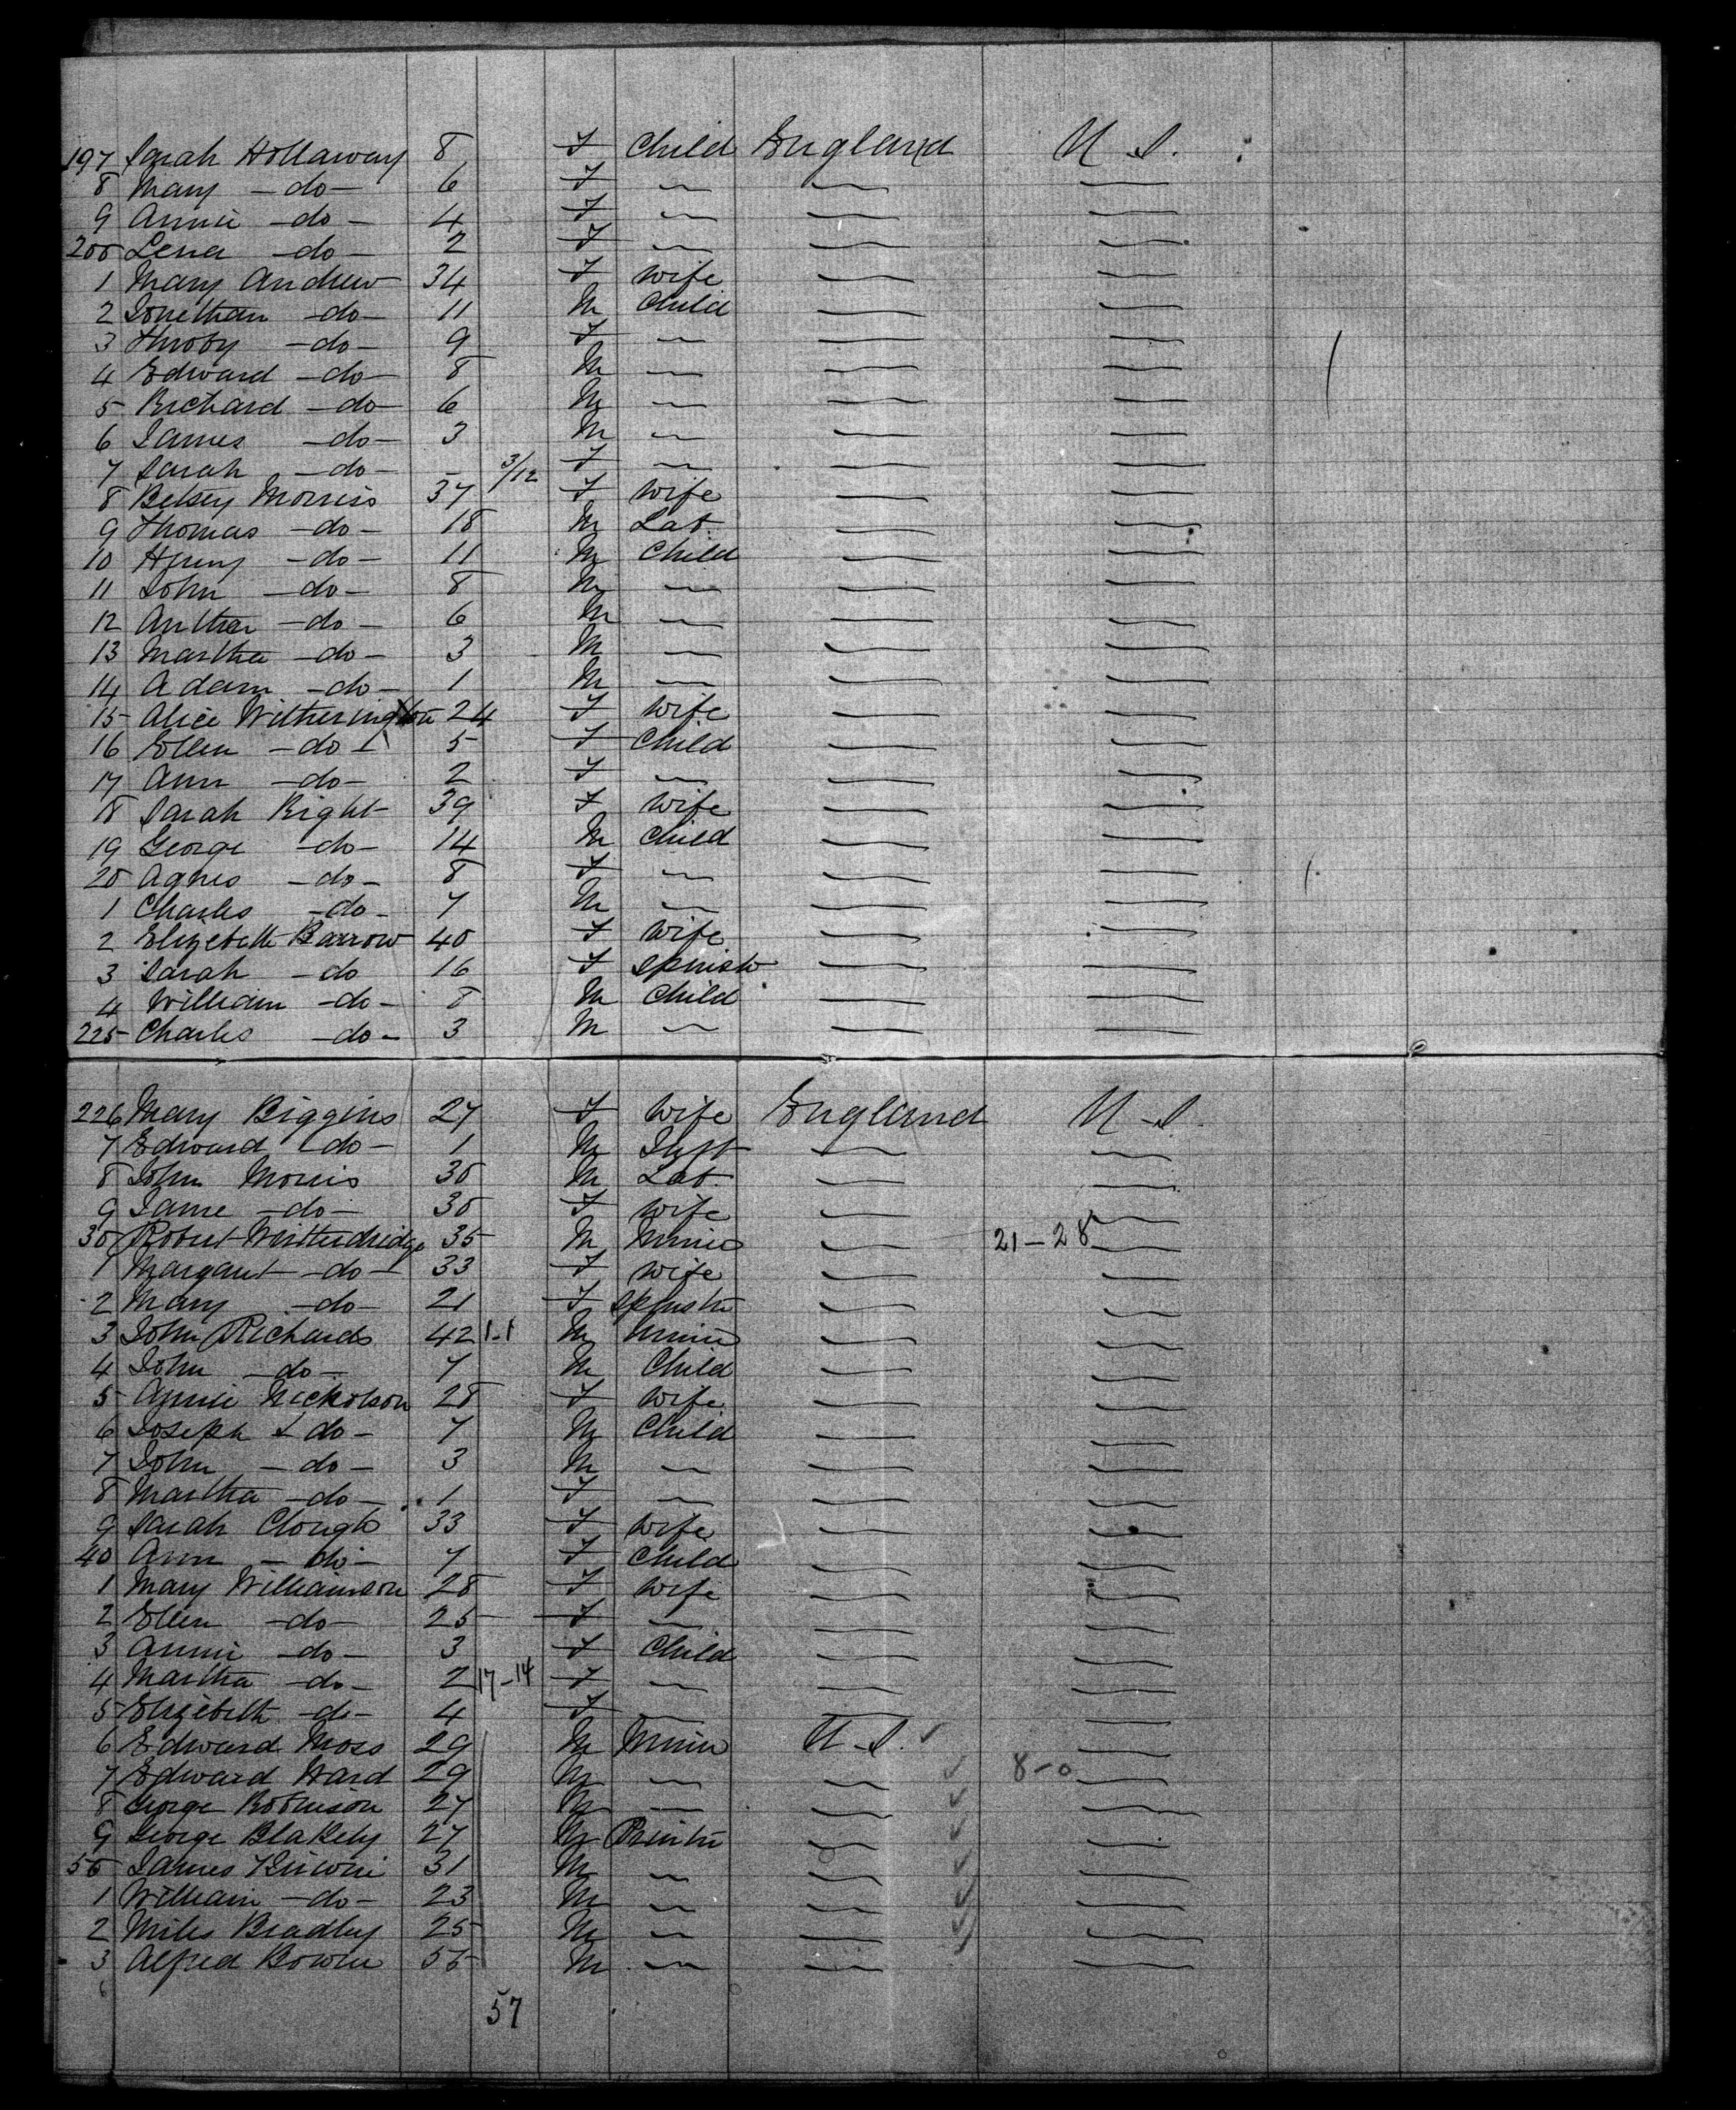 197 Sarah Hollaway 8 F Child England U.S.
8 Mary -do- 6 F — — —
9 Annie -do- 4 F — — —
200 Lena -do- 2 F — — —
1 Mary Andrew 34 F Wife — —
2 Jonethan -do- 11 M Child — —
3 -do- 9 F — — —
4 Edward -do- 8 M — — —
5 Richard -do- 6 M — — —
6 James -do- 3 M — — —
7 Sarah -do- - 3/12 F — — —
8 Betsey Morris 37 F Wife — —
9 Thomas -do- 18 M Lab. — —
10 Henry -do- 11 M Child — —
11 John -do- 8 M — — —
12 -do- 6 M — — —
13 Martha -do- 3 M — — —
14 Adam -do- 1 M — — —
15 Alice Witherington 24 F Wife — —
16 Ellen -do- 5 F Child — —
17 Ann -do- 2 F — — —
18 Sarah Right 39 F Wife — —
19 George -do- 14 M Child — —
20 Agnes -do- 8 F — — —
1 Charles -do- 7 M — — —
2 Elizebeth Barrow 40 F Wife — —
3 Sarah -do 16 F — —
4 William -do- 8 M Child — —
225 Charles -do- 3 M — — —
226 Mary Biggins 27 F Wife England U.S.
7 Edward -do- 1 M Inft — —
8 John Morris 30 M Lab. — —
9 Jane -do- 30 F Wife — —
30 Robert 35 M Miner — 21-28 —
1 Margaret -do- 33 F Wife — —
2 Mary -do- 21 F Spinster — —
3 John Richards 42 1-1 M Miner — —
4 John do- 7 M Child — —
5 Annie Nickolson 28 F Wife — —
6 Joseph do- 7 M Child — —
7 John -do- 3 M — — —
8 Martha -do- 1 F — — —
9 Sarah Clough 33 F Wife — —
40 Ann -do- 7 F Child — —
1 Mary Williamson 28 F Wife — —
2 Ellen -do- 25 F — — —
3 Annie -do- 3 F Child — —
4 Martha -do- 2 17-14 F — — —
5 Elizebeth -do- 4 F — — —
6 Edward Moss 29 M Miner U.S. ✓ —
7 Edward Ward 29 M — — ✓ 8-0 —
8 George Robinson 27 M — — ✓ —
9 George Blakely 27 M Printer — ✓ —
50 James 31 M — — ✓ —
1 William -do- 23 M — — ✓ —
2 Miles Bradley 25 M — — ✓ —
3 Alfred Bowen 55 M — — —
57